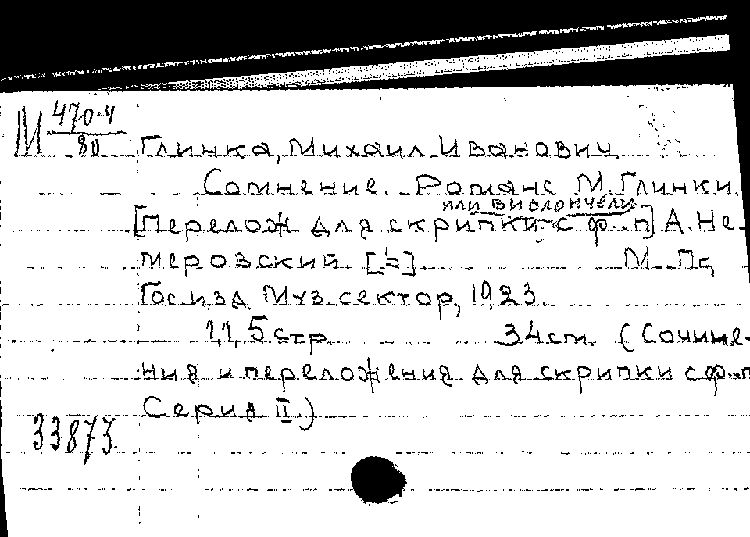 М 470-4
80
Глинка, Михаил Иванович
Сомнение. Романс М. Глинки.
или виолончели
[Перелож для скрипки с ф.-п] А. Не-
меровский [=]. М. Пг,
Госизд Муз. сектор, 1923.
1,1,5 стр 34 cm. (Сочине-
ния и переложения для скрипки с ф.-п
Серия II.)
33873